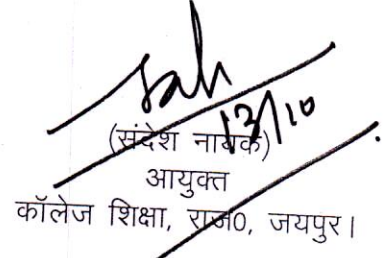 13/10
(संदेश नायक)
आयुक्त
कॉलेज शिक्षा, राज0, जयपुर।